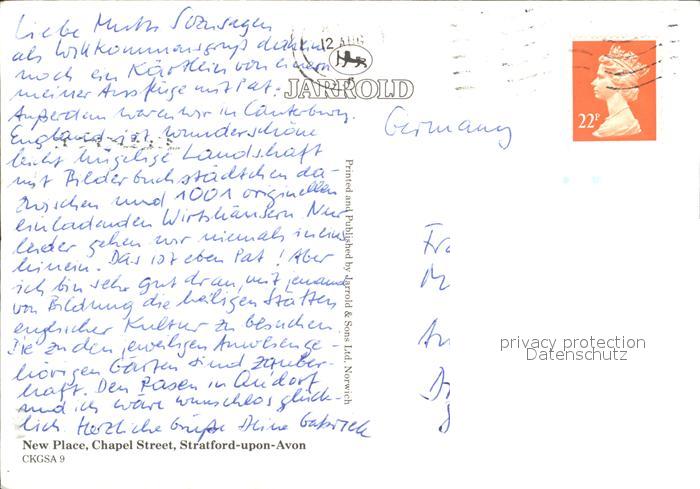 Liebe Mutter
als Willkommensgruß
noch ein Kärtlein von einem
meiner Ausflüge mit Pat.
Außerdem waren wir in Canterbury.
England ist wunderschöne
leicht hügelige Landschaft
mit Bilderbuchstädtchen da-
zwischen und 1001 originellen
einladenden Wirtshäusern. Nur
leider gehen wir niemals in ein
hinein. Das ist eben Pat! Aber
ich bin sehr gut dran, mit jemand
von Bildung die heiligen Stätten
englischer Kultur zu besuchen.
Die zu den jeweiligen Anwesen ge-
hörigen Gärten sind zauber-
haft. Den Rasen in
und ich wäre wunschlos glück-
lich. Herzliche Grüße Deine
New Place, Chapel Street, Stratford-upon-Avon
CKGSA 9
12 AUG
JARROLD
Printed and Published by Jarrold & Sons Ltd. Norwich
22P
Germany
privacy protection
Datenschutz